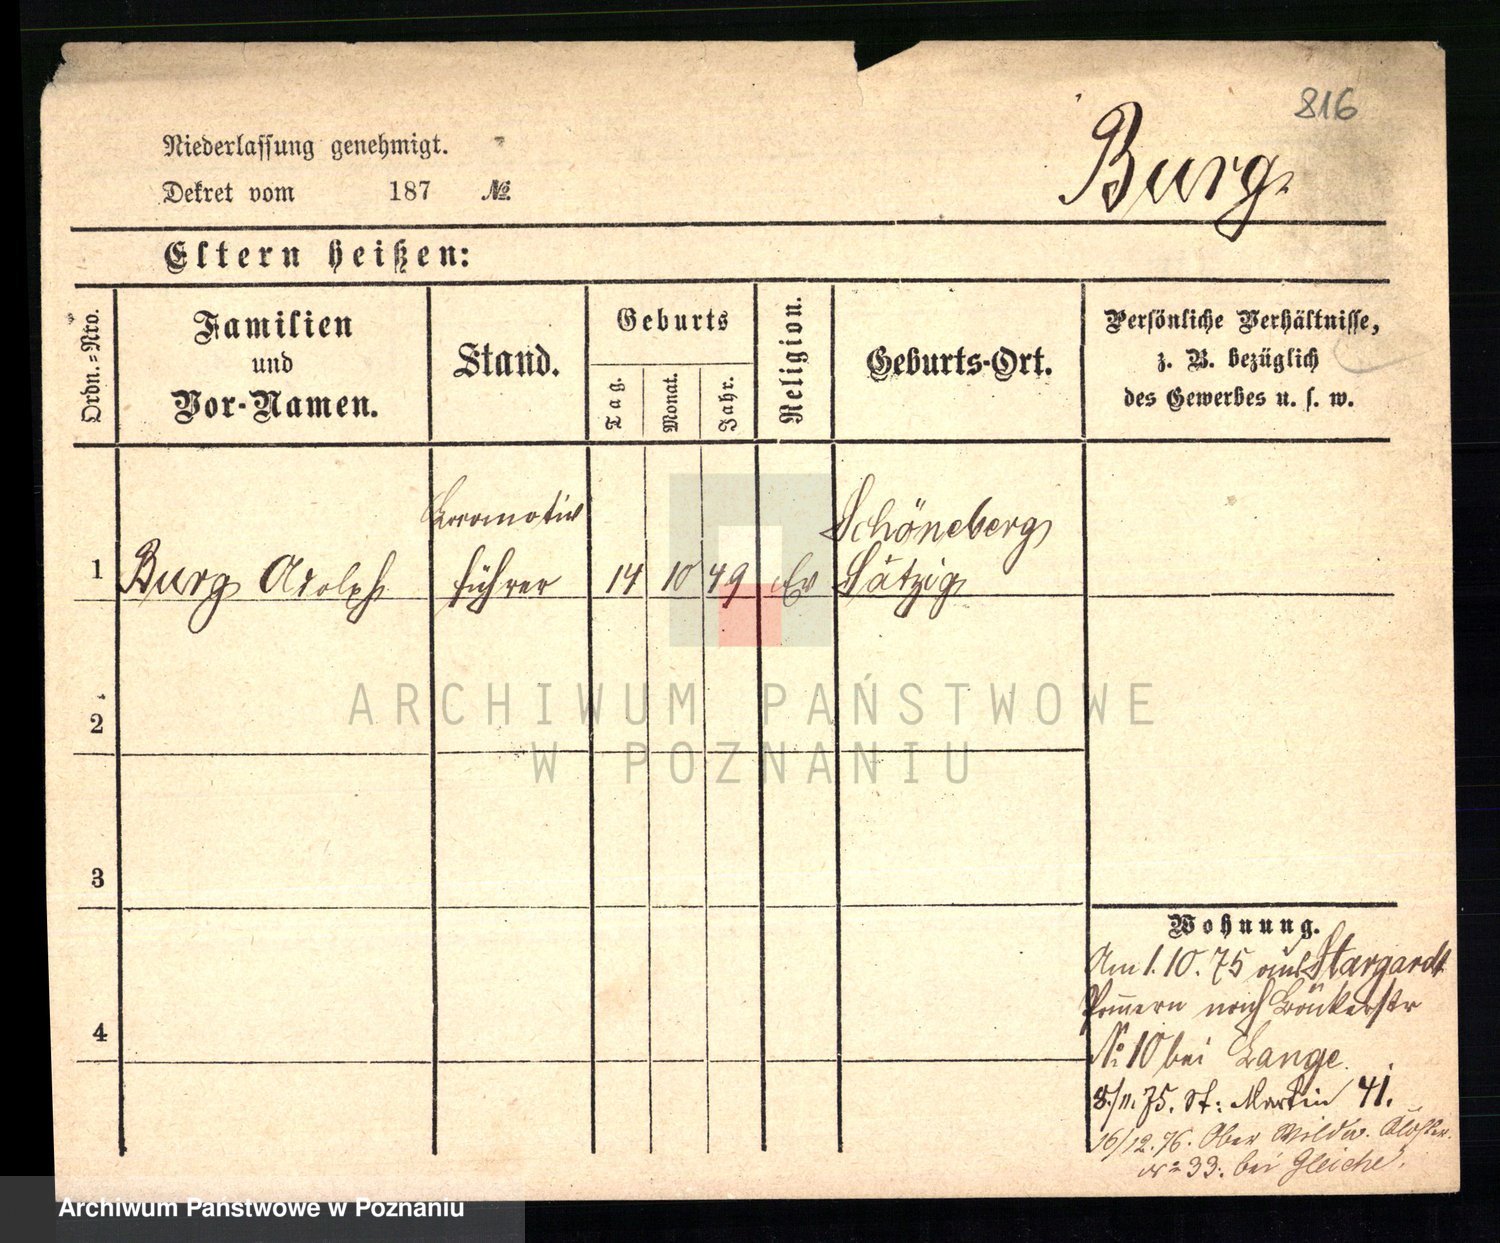 816
Burg
Niederlassung genehmigt.
Dekret vom 187 №.
Eltern heißen:
Ordn.=Nro.
Familien
und
Vor-Namen.
Stand.
Geburts
Tag.
Monat.
Jahr.
Religion.
Geburts-Ort.
Persönliche Verhältnisse,
z. B. bezüglich
des Gewerbes u. s. w.
1
Burg Adolph
Locomotiv
führer
14
10
49
Ev
Schöneberg
Sätzig
2
3
4
Wohnung.
Am 1.10.75 aus Stargardt
Pommern nach Bäckerstr
No 10 bei Lange.
8/11.75. St: Martin 41.
16/12.76. Ober
No 33. bei Gleiche.
ARCHIWUM PAŃSTWOWE
W POZNANIU
Archiwum Państwowe w Poznaniu